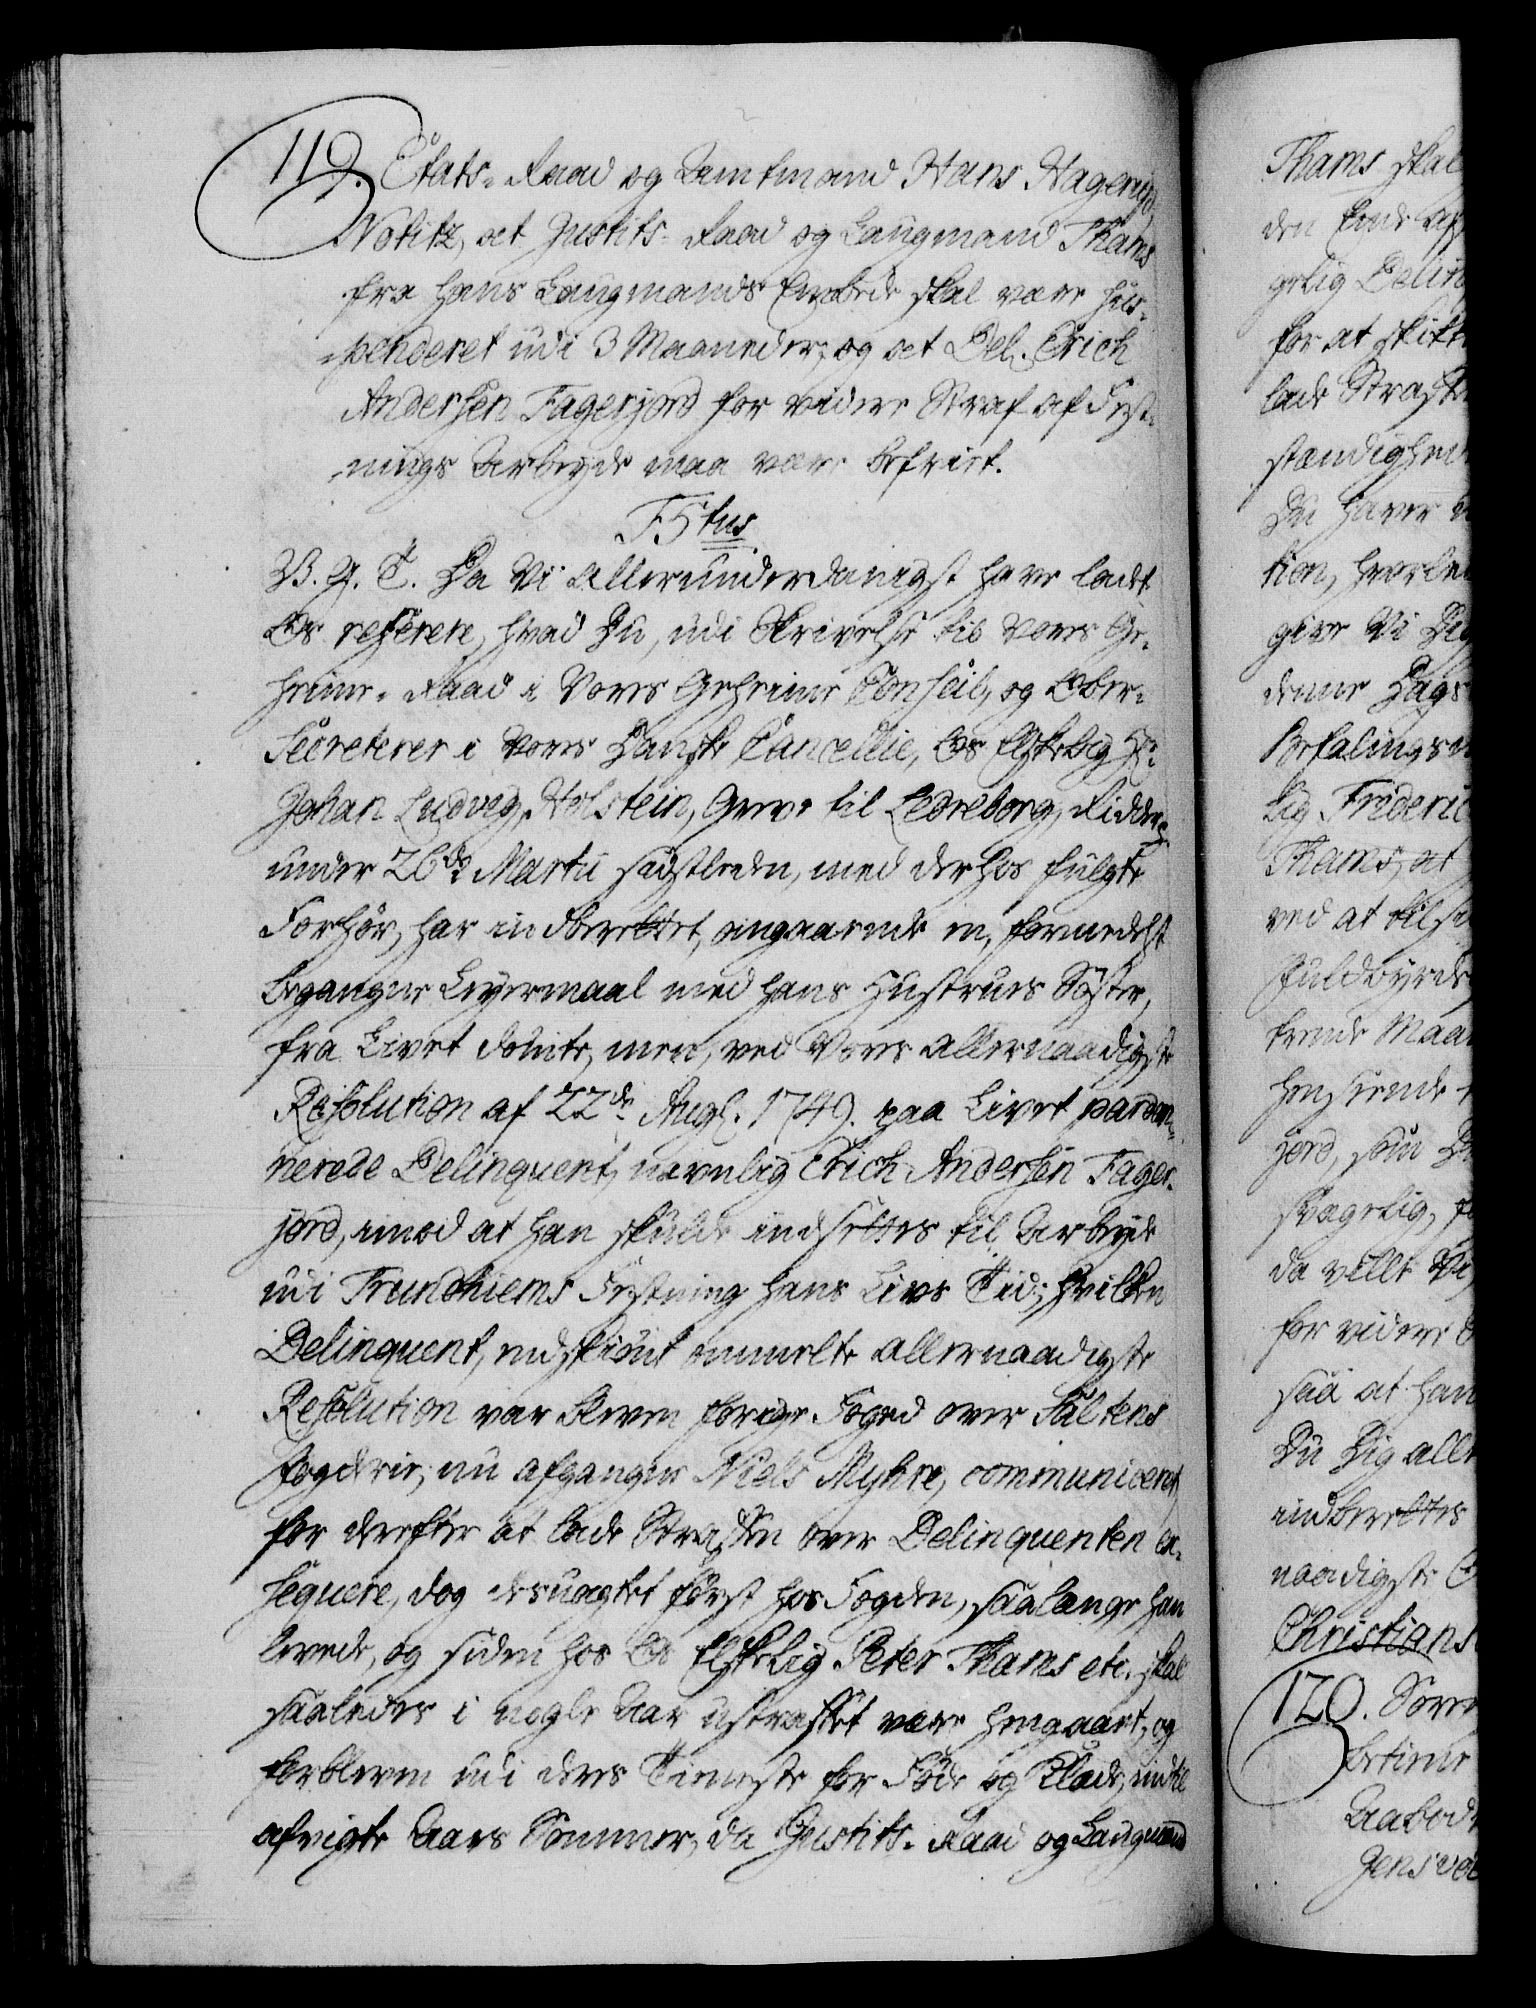 119. Etats-Raad og Amtmand Hans Hagerup
Notitz, at Justits-Raad og Laugmand Thams
fra hans Laugmands Embede skal være sus-
penderet udi 3 Maaneder, og at Del. Erich
Andersen Fagerjord for videre Straf af Fæst-
nings Arbeyde maa være befriet.
F5tus
V. G. T. Da Vi allerunderdanigst have ladet
Os referere, hvad Du, udi Skrivelse til Vores Ge-
heime-Raad i Vores Geheime Conseil, og Ober-
Secreterer i Vores Danske Cancellie, Os Elskelig Hr.
Johan Ludvig Holstein, Greve til Ledreborg, Ridder,
under 26de Martii sidstleden, med derhos fulgte
Forhør, har indberettet, angaaende en, formedelst
begangne Leyermaal med hans Hustrues Søster,
fra Livet dømte, men, ved Vores allernaadigste
Resolution af 22de Aug. 1749. paa Livet pardon-
nerede Delinquent, navnlig Erich Andersen Fager-
jord, imod at han skulde indsettes til Arbeyde
udi Trundhiems Fæstning hans Livs Tid; hvilken
Delinquent, endskiønt ommelte allernaadigste
Resolution var bleven forige Foged over Saltens
Fogderie, nu afgangne Niels Myhre, communiceret,
for derefter at lade Straffen over Delinquenten ex-
seqvere, dog desuagtet først hos Fogden, saalænge han
levede, og siden hos Os Elskelig Peter Thams etc. skal
saaledes i nogle Aar ustraffet være hengaaet, og
forbleven udi deres Tieneste for Føde og Klæde, indtil
afvigte Aars Sommer, da Justits-Raad og Laugmand
Thams skal
den
gelig Delin
for at
lade Straffe
stændighed
Du haver
tion, hvorled
give Vi Dig
denne Dags
Befalings
lig Frideric
Thams, at
ved at tils
fuldbyrde
trende Maa
henseende
jord, som
svagelig,
da ville Vi
for videre
saa at han
Du Dig aller
indberettes
naadigste
Christians
120. Søren
betiene
Aabod
Jens